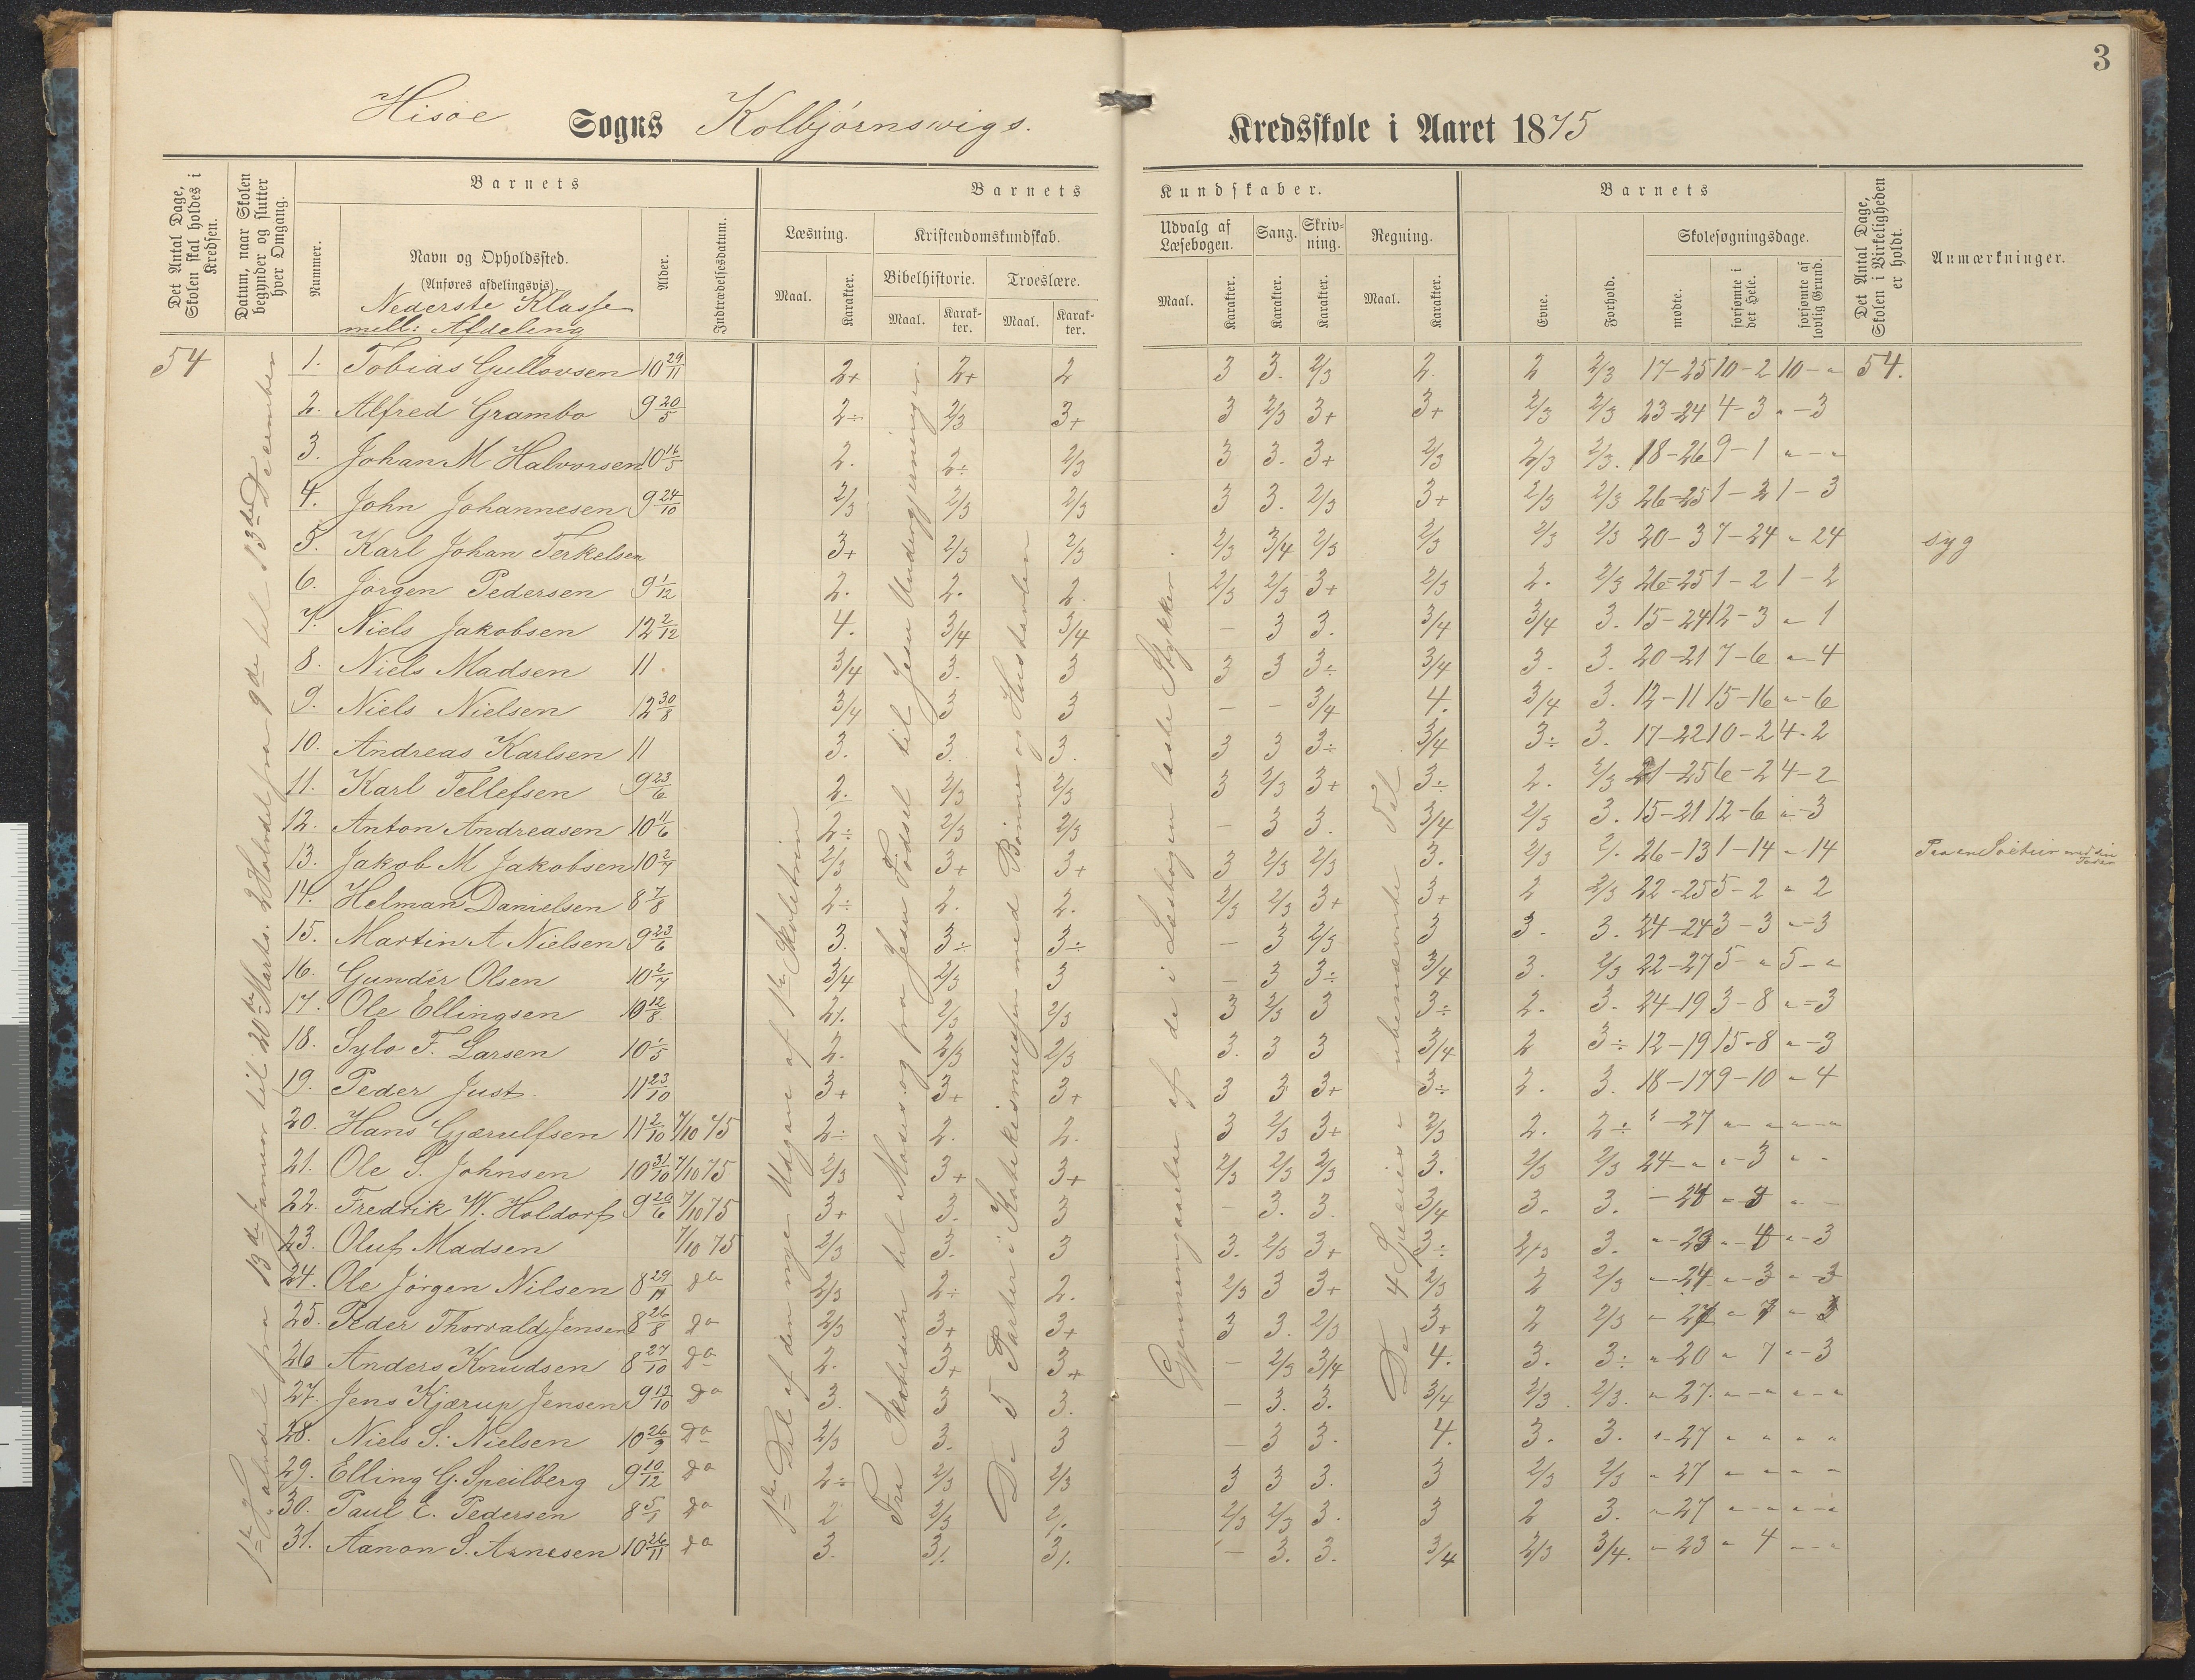 3
Hisøe Sogns Kolbjørnsvigs. Kredsskole i Aaret 1875
Det Antal Dage, Skolen skal holdes i Kredsen.
Datum, naar Skolen begynder og slutter hver Omgang.
Barnets
Nummer.
Navn og Opholdssted.
(Anføres afdelingsvis).
Nederste Klasse
mell: Afdeling
Alder.
Indtrædelsesdatum.
Barnets Kundskaber.
Læsning.
Maal.
Karakter.
Kristendomskundskab.
Bibelhistorie.
Maal.
Karakter.
Troeslære.
Maal.
Karakter.
Udvalg af Læsebogen.
Maal.
Karakter.
Sang.
Karakter.
Skrivning.
Karakter.
Regning.
Maal.
Karakter.
Barnets
Evne.
Forhold.
Skolesøgningsdage.
mødte.
forsømte i det Hele.
forsømte af lovlig Grund.
Det Antal Dage, Skolen i Virkeligheden er holdt.
Anmærkninger.
54
1ste Halvdel fra 13de Januar til 20de Marts. 2 Halvdel fra 9de til 13de December
1ste Del af den nye Udgave af 1ste Skoletrin
Fra Skabelsen til Moses og fra Jesu Fødsel til Jesu Undergjerninger.
De 5 Parter i Katekismen med Bønner og Hustavlen
Gjennemgaaelse af de i Læsebogen læste Stykker.
De 4 Species i ubenævnte Tal
1. Tobias Gullovsen 10 29/11 2+ 2+ 2 3 3. 2/3 2. 2 2/3 17-25 10-2 10-" 54.
2. Alfred Grambo 9 20/5 2÷ 2/3 3+ 3 2/3 3+ 3+ 2/3 2/3 23-24 4-3 "-3
3. Johan M Halvorsen 10 16/5 2. 2÷ 2/3 3 3. 3+ 2/3 2/3 2/3. 18-26 9-1 "-"
4. John Johannesen 9 24/10 2/3 2/3 2/3 3 3. 2/3 3+ 2/3 2/3 26-25 1-2 1-3
5. Karl Johan Terkelsen 3+ 2/3 2/3 2/3 3/4 2/3 2/3 2/3 2/3 20-3 7-24 "24 syg
6. Jørgen Pedersen 9 1/12 2. 2. 2. 2/3 2/3 3+ 2/3 2. 2/3 26-25 1-2 1-2
7. Niels Jakobsen 12 2/12 4. 3/4 3/4 - 3 3. 3/4 3/4 3. 15-24 12-3 "1
8. Niels Madsen 11 3/4 3. 3 3 3 3÷ 3/4 3. 3. 20-21 7-6 "-4
9. Niels Nielsen 12 30/8 3/4 3 3 - - 3/4 4. 3/4 3. 12-11 15-16 "-6
10. Andreas Karlsen 11 3. 3. 3. 3 3 3÷ 3/4 3÷ 3. 17-22 10-2 4-2
11. Karl Tellefsen 9 23/6 2. 2/3 2/3 3 2/3 3+ 3÷ 2. 2/3 21-25 6-2 4-2
12. Anton Andreasen 10 11/6 2÷ 2/3 2/3 - 3 3. 3/4 2/3 3. 15-21 12-6 "-3
13. Jakob M Jakobsen 10 2/7 2/3 3+ 3+ 3 2/3 2/3 3. 2/3 2/. 26-13 1-14 "14 Paa en Søetur med sin Fader
14. Helman Danielsen 8 7/8 2÷ 2. 2. 2/3 2/3 3+ 3+ 2 2/3 22-25 5-2 "2
15. Martin A Nielsen 9 23/6 3. 3÷ 3÷ - 3 2/3 3 3. 3. 24-24 3-3 "-3
16. Gundér Olsen 10 2/7 3/4 2/3 3 - 3 3÷ 3/4 3. 2/3 22-27 5-" 5-"
17. Ole Ellingsen 10 12/8 2/. 2/3 2/3 3 2/3 3 3÷ 2. 3. 24-19 3-8 "-3
18. Sylo F. Larsen 10 1/5 2. 2/3 2/3 3. 3 3 3/4 2 3÷ 12-19 15-8 "-3
19. Peder Just. 11 23/10 3+ 3+ 3+ 3 3 3+ 3÷ 2. 3. 18-17 9-10 "4
20. Hans Gjærulfsen 11 2/10 7/10 75 2÷ 2. 2. 3 2/3 3+ 2/3 2. 2÷ "-27 "-" "-"
21. Ole S. Johnsen 10 31/10 7/10 75 2/3 3+ 3+ 2/3 2/3 2/3 3. 2/3 2/3 24-" "-3 "-
22. Fredrik W. Holdorf 9 20/6 7/10 75 3+ 3. 3 - 3. 3. 3/4 3. 3.
23. Oluf Madsen 7/10 75 2/3 3. 3 3. 2/3 3+ 3÷ 2/3 3. "-23 "-4 "-3
24. Ole Jørgen Nilsen 8 29/11 do 2/3 2÷ 2. 2/3 3 3+ 2/3 2 2/3 "-24 "-3 "-3
25. Peder Thorvald Jensen 8 26/8 do 2/3 3+ 3+ 3 3. 2/3 3+ 2 2/3
26 Anders Knudsen 8 27/10 do 2. 3+ 3+ - 2/3 3/4 4. 3. 3÷ "-20 "7 "-3
27. Jens Kjærup Jensen 9 13/10 do 3. 3 3. - 3. 3. 3/4 2/3. 2/3. "-27. "-" "-"
28. Niels S. Nielsen 10 26/9 do 2/3 3. 3 - 3 3. 4. 3. 3. "-27 " " " "
29. Elling G. Speilberg 9 10/12 do 2÷ 2/3 2/3 3 3 3. 3 2/3 2/3 "27 "-" "-"
30. Paul E. Pedersen 8 5/1 do 2 2/3 2/. 2/3 2/3 3. 3 2 3. "-27 "-" "-"
31. Aanon S. Arnesen 10 26/11 do 3. 3/. 3/. - 3. 3. 3/4 2/3 3/4. "-23 "4 "-"